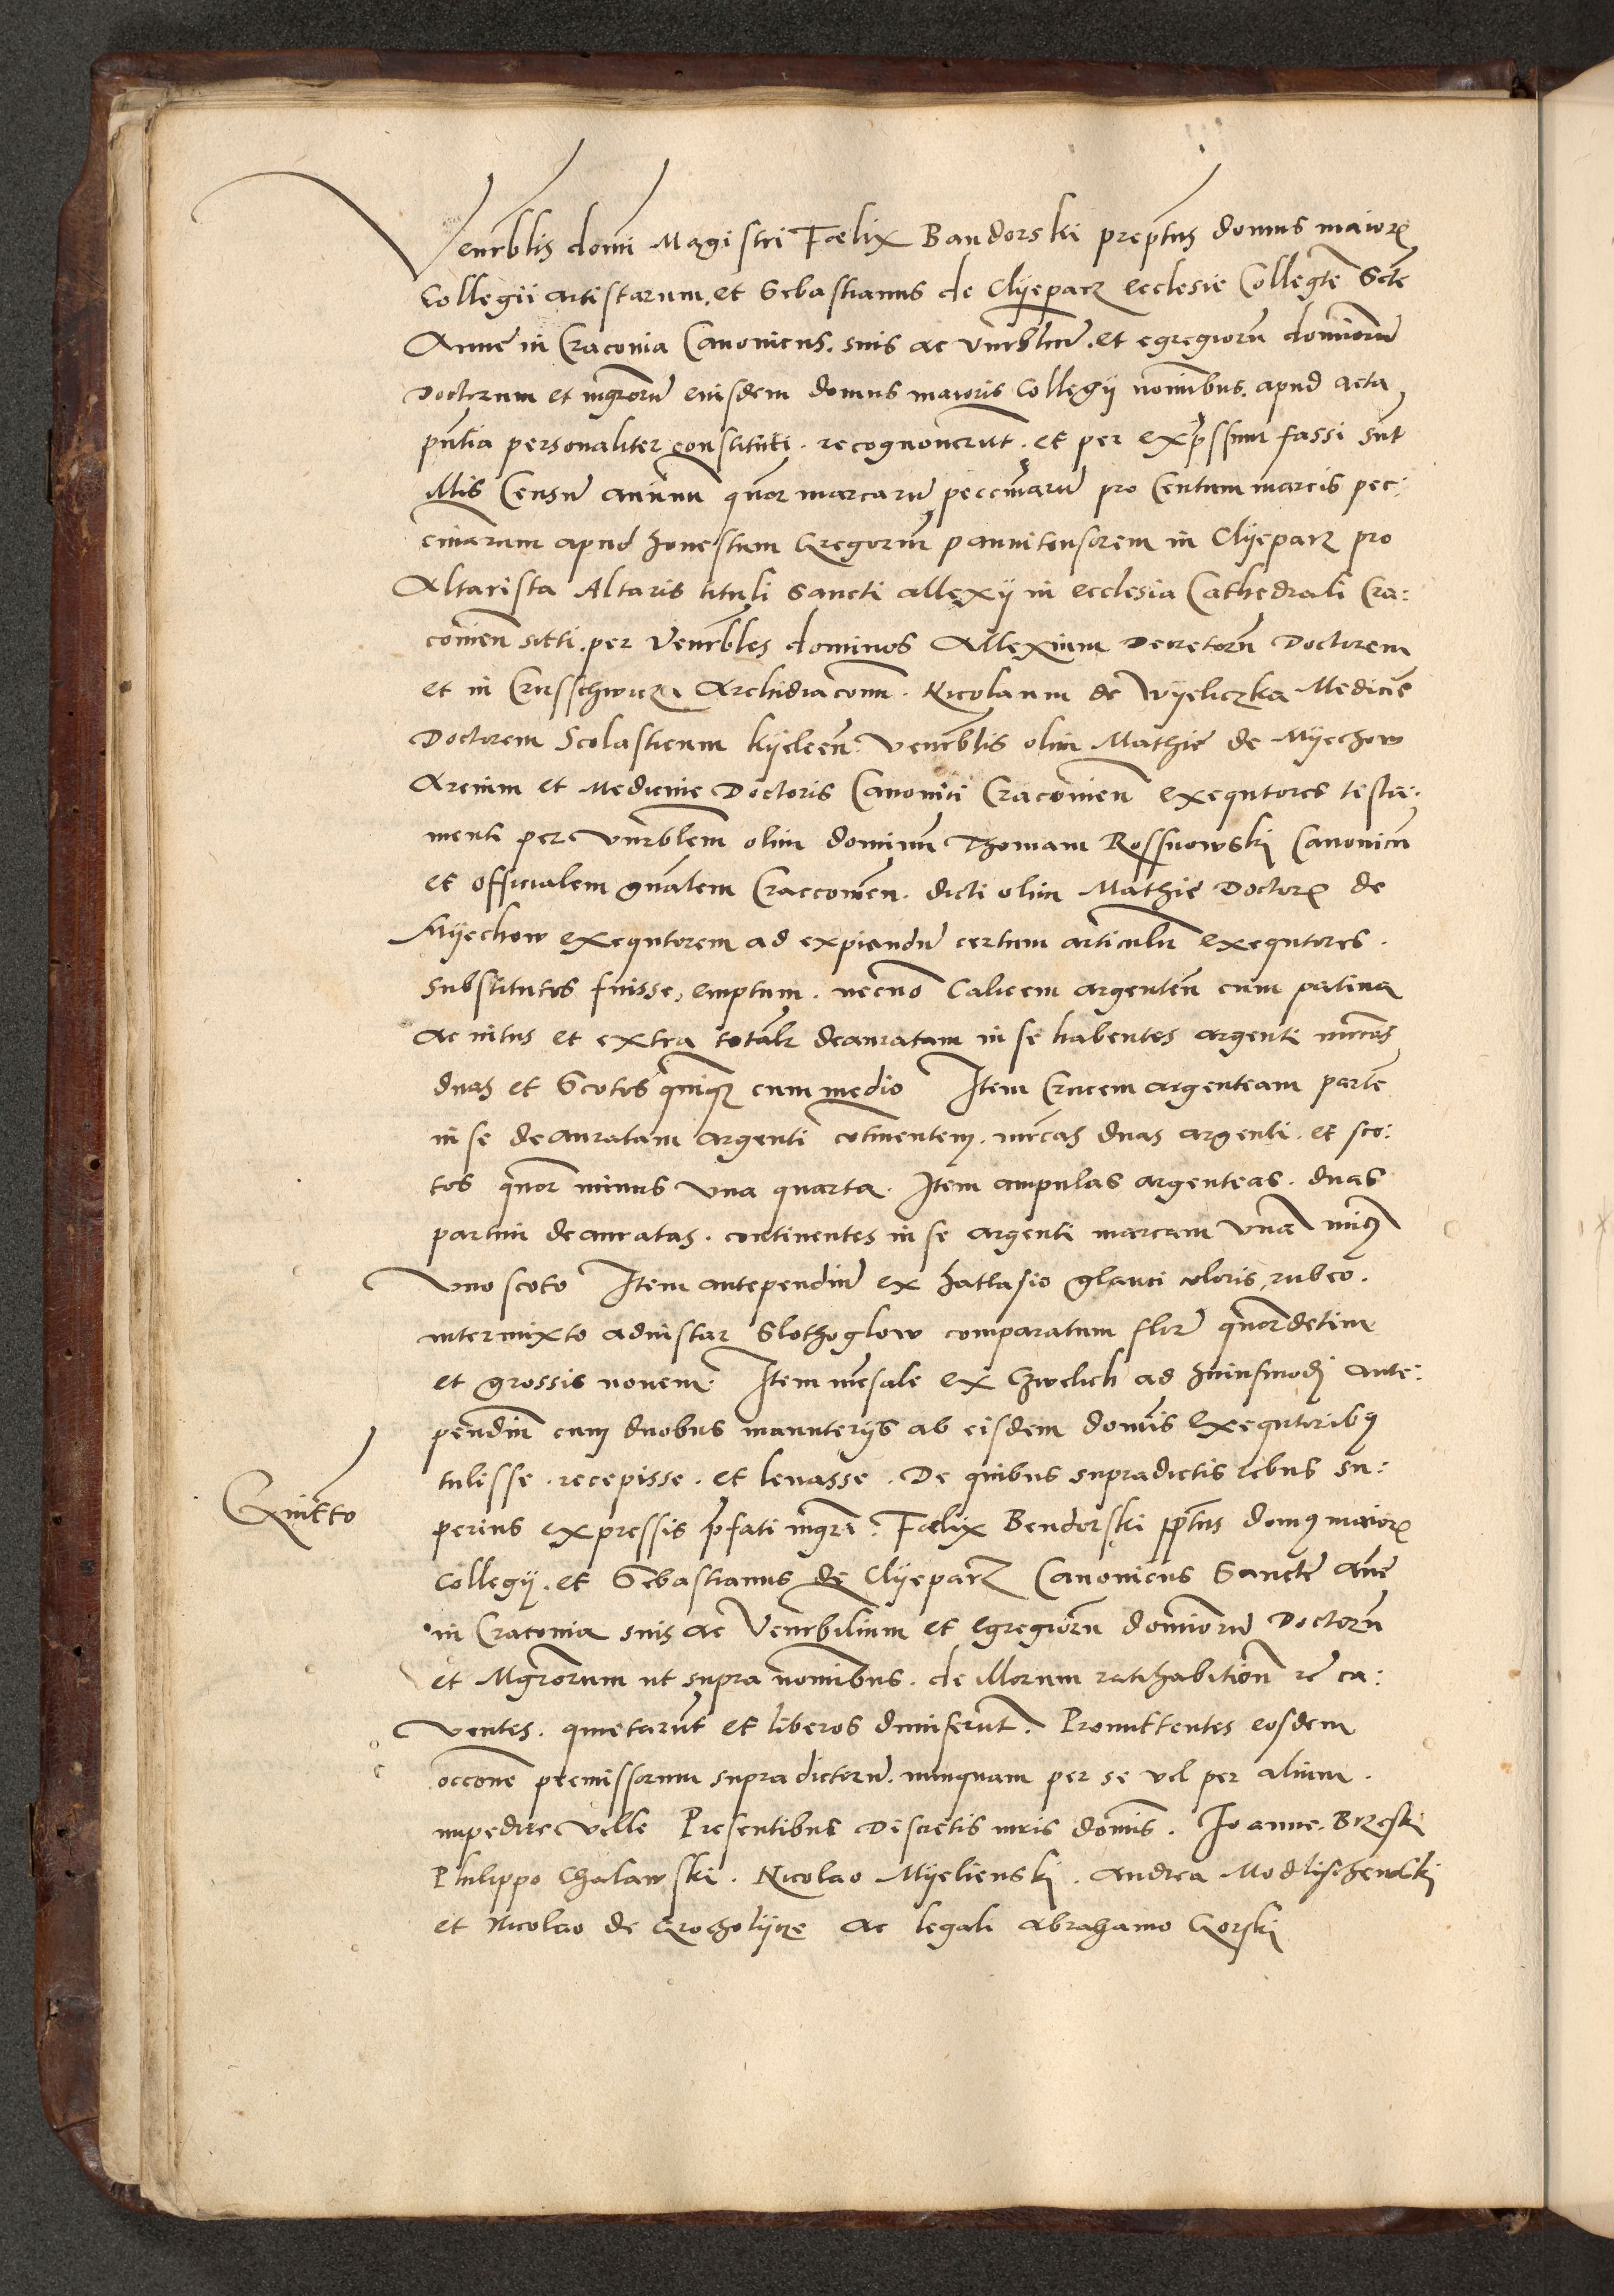 Venrblis domi Magistri Fœlix Bandorski prepτus domus maior
Collegii artistarum. et Sebastianus de Clÿeparz ecclesie Collegte Scte
Anne in Craconia Canonicus. suis ac vnrblium. et egregiorū dominorū
Doctorum et mgrorū eiusdem domus maioris Collegij nomibus. apud acta
pn̄tia personaliter constituti. recognouerūt. et per expressum fassi sūt
illis Censū annuū quōr marcarū peccuniarū pro Centum marcis pec:
cuniarum apud honestum Gregoriū pannitonsorem in Clÿeparz pro
Altarista Altaris tituli Sancti allexij in ecclesia Cathedrali Cra:
couien̄ sitti. per venerbles dominos Allexium Decretorū Doctorem
et in Crusschwicza Archidiaconū. Nicolaum de Wÿeliczka Medicīe
Doctorem Scolasticum Kÿelcen̄ venerblis olim Mathie de Mÿechow
Arcium et Medicinie Doctoris Canonici Cracouien̄ exequtores testa:
menti per vnrblem olim dominū Thomam Rossnowski Canonicū
et officialem gn̄alem Craccouien̄. dicti olim Mathie Doctor de
Mÿechow exequtorem ad expiendū certum articulū exequtores.
Substitutos fuisse, emptum. necnō Calicem argenteū cum patina
ac intus et extra totālr deauratam in se habentes argenti mrcas
duas et Scotos quinqz cum medio Item Crucem argenteam partē
in se deauratam argenti cōtinentem. mrcas duas argenti. et sco:
tos quōr minus vna quarta. Item ampulas argenteas. duas
partim deauratas. continentes in se argenti marcam vnā min9
vno scoto Item antependiū ex hattasio glauci coloris rubeo.
intermixto adinstar Slothoglow comparatum flor quōrdecim
et grossis nouem. Item mēsale ex Czwelich ad huiusmodi ante:
pendiū cum duobus manuterijs ab eisdem domīs Exequtorib9
tulisse. recepisse. et leuasse. De quibus supradictis rebus su:
Quitto
perius expressis p̄fati mgri. Fœlix Bendorski pptus dom9 maior
Collegij. et Sebastianus de Clÿeparz Canonicus Sancte Ane
in Craconia suis ac Venerbilium et egregiorū dominorū Doctorū
et Mgrorum ut supra nomibus. de illorum ratihabitione re ca:
uentes. quietarūt et liberos dimiserūt. Promittentes eosdem
occōne premissorum supradictorū. nunquam per se vel per alium.
impedire velle Presentibus Discretis viris domīs. Ioanne. Brzeski
Philippo Chalawski. Nicolao Mÿelienski. Andrea Modlischewski
et Nicolao de Grocholÿcze ac legali Abrahamo Gorski